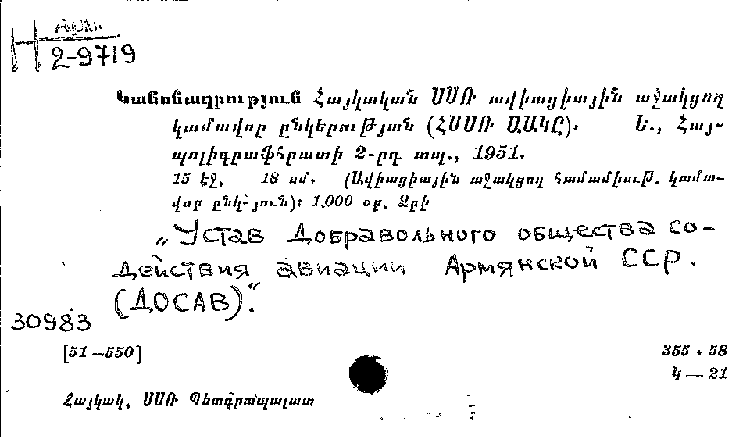 Н 2-9719
Կանոնադրություն Հայկական ՍՍՌ ավիացիային աջակցող
կամավոր ընկերության (ՀՍՍՌ ԱԱԿԸ). Ե., Հայ-
պոլիգրաֆհրատի 2-րդ տպ., 1951.
15 էջ. 18 սմ. (Ավիացիային աջակցող համամիութ. կամա-
վոր ընկ-յուն)։ 1.000 օր. Ձրի
„Устав Добравольного общества со-
действия авиации Армянской ССР.
(ДОСАВ)."
30983
[51—550] 355.58
Կ—21
Հայկակ. ՍՍՌ Պետգրապալատ